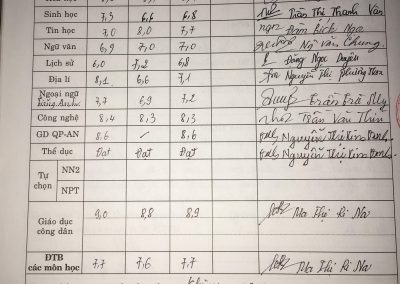 Sinh học 7,3 6,6 6,8 Trần Thị Thanh Vân
Tin học 7,0 8,0 7,7 Đàm Bích Nga
Ngữ văn 6,9 7,0 7,0 Ngô Văn Chung
Lịch sử 6,0 7,2 6,8 Đặng Ngọc Duyên
Địa lí 8,1 6,6 7,1 Nguyễn Thị Phương
Ngoại ngữ
Tiếng Anh 7,7 6,9 7,2 Trần Trà My
Công nghệ 8,4 8,3 8,3 Trần Văn Thìn
GD QP-AN 8,6 / 8,6 Nguyễn Thị Kim
Thể dục Đạt Đạt Đạt Nguyễn Thị Kim
Tự chọn NN2
NPT
Giáo dục
công dân 9,0 8,8 8,9 Ma Thị Li Na
ĐTB
các môn học 7,7 7,6 7,7 Ma Thị Li Na